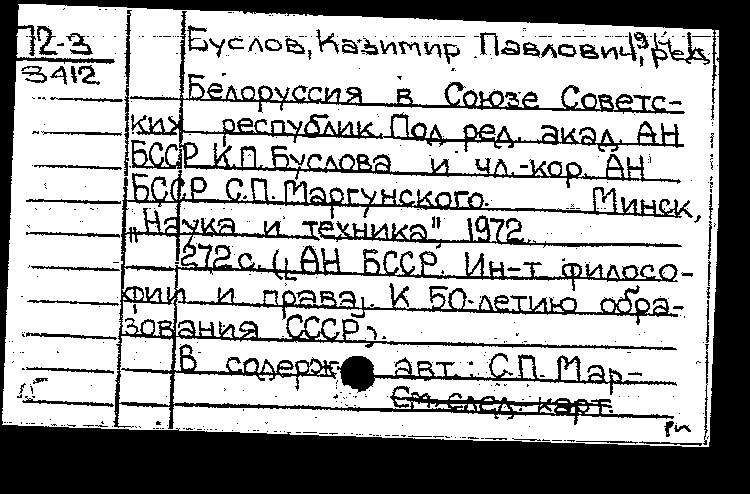 72-3
3412
Буслов, Казимир Павлович, ред.
Белоруссия в Союзе Советс-
ких республик. Под ред. акад. АН
БССР К.П. Буслова и чл.-кор. АН
БССР С.П. Маргунского. Минск,
„Наука и техника", 1972.
272 с. (АН БССР. Ин-т филосо-
фии и права). К 50-летию обра-
зования СССР).
В содерж. авт.: С.П. Мар-
См. след. карт.